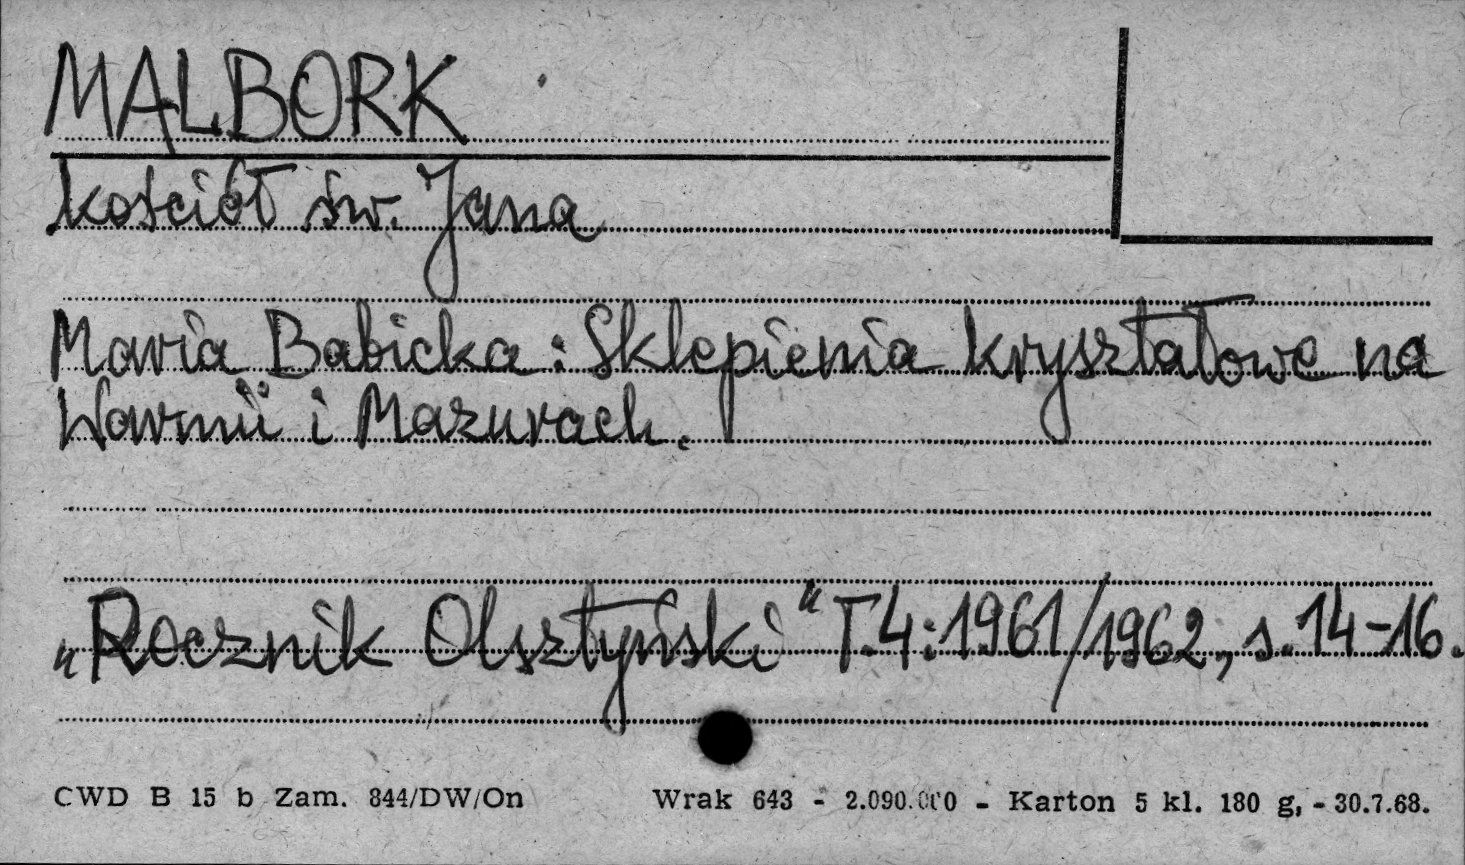 MALBORK
kościół św. Jana
Maria Babicka: Sklepienia kryształowe na
Warmii i Mazurach.
„Rocznik Olsztyński“ T.4:1961/1962, s.14-16.
CWD B 15 b Zam. 844/DW/On Wrak 643 - 2.090.000 - Karton 5 kl. 180 g, - 30.7.68.